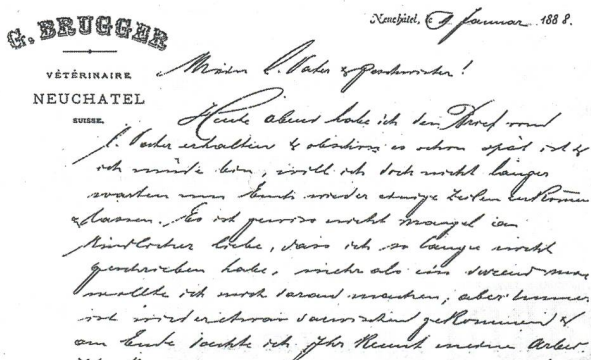 G. BRUGGER
VÉTÉRINAIRE
NEUCHATEL
SUISSE.
Neuchâtel, le 9 Januar 1888.
Mein l. Vater & Geschwister!
Heute abend habe ich den Brief von
l. Vater erhalten & obschon es schon spät ist &
ich müde bin, will ich doch nicht länger
warten um Euch wieder einige Zeilen zukommen
zu lassen. Es ist gewiss nicht mangel an
kindlicher liebe, dass ich so lange nicht
geschrieben habe, mehr als ein dutzend mal
wollte ich mich daran machen, aber immer
ist wieder etwas dazwischen gekommen &
am Ende dachte ich, Ihr kennt meine Arbeit